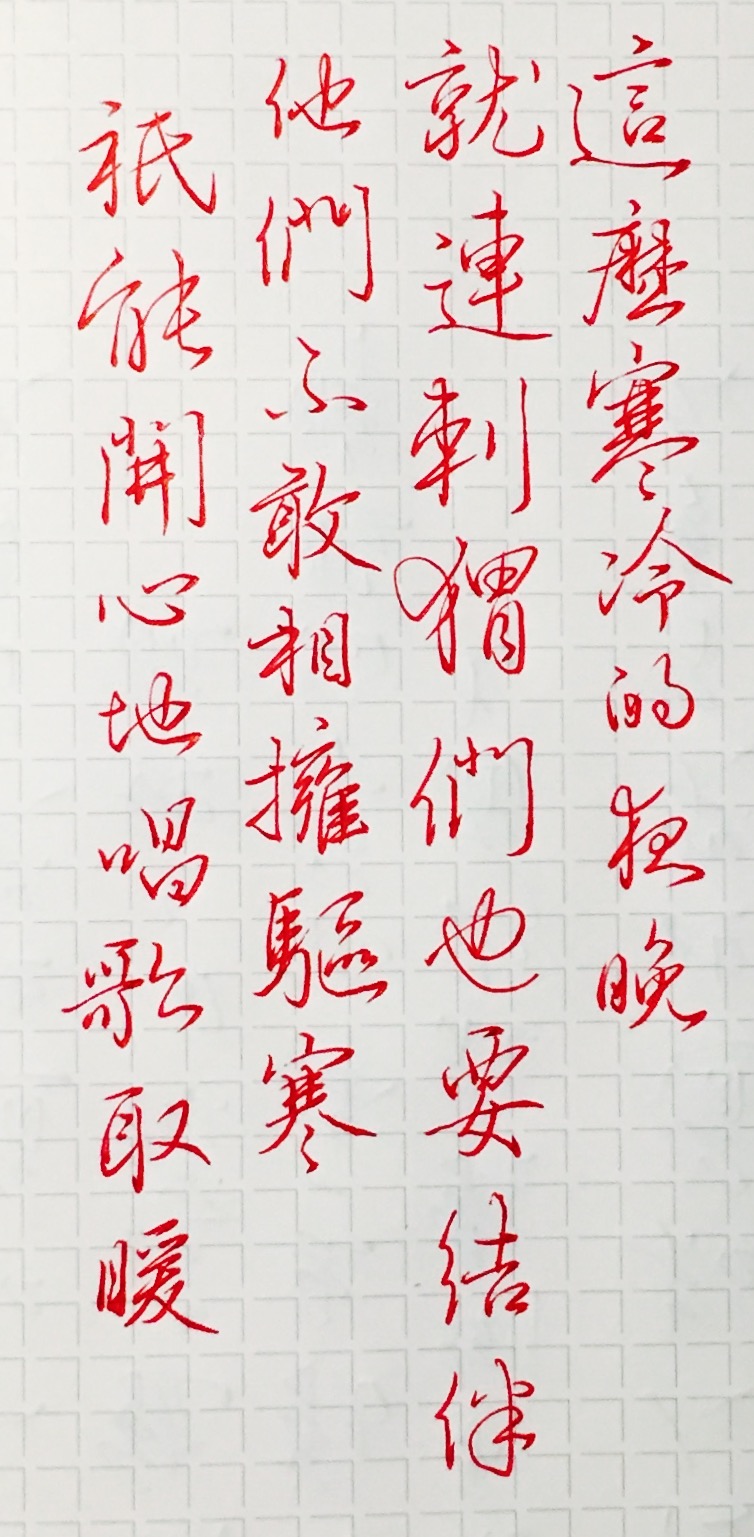 這麼寒冷的夜晚
就連刺猬們也要結伴
他們不敢相擁驅寒
祇能開心地唱歌取暖